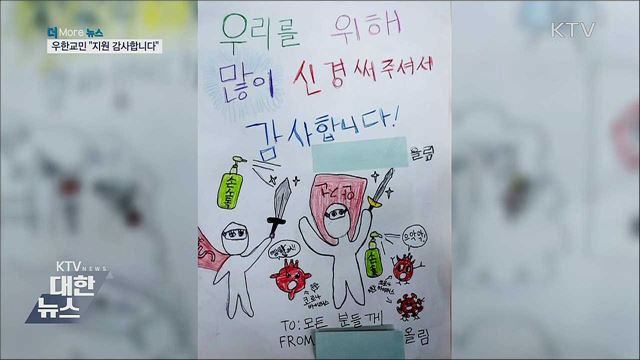 더 More 뉴스
우한교민 "지원 감사합니다"
KTV
우리를 위해
많이 신경써주셔서
감사합니다!
올림
손소독
코로나
으악악
TO: 모든 분들께
FROM
올림
KTV NEWS
대한
뉴스